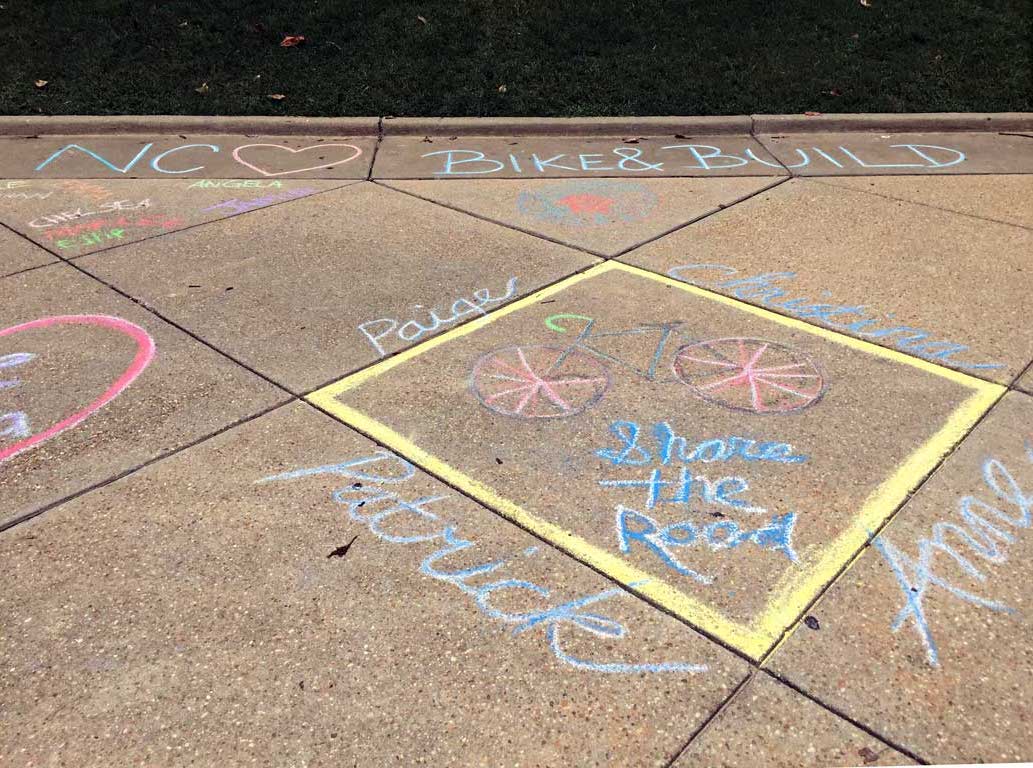 NC ♡ BIKE & BUILD
ANGELA
CHELSEA
Paige
Christina
Share
the
Road
Patrick
Anne